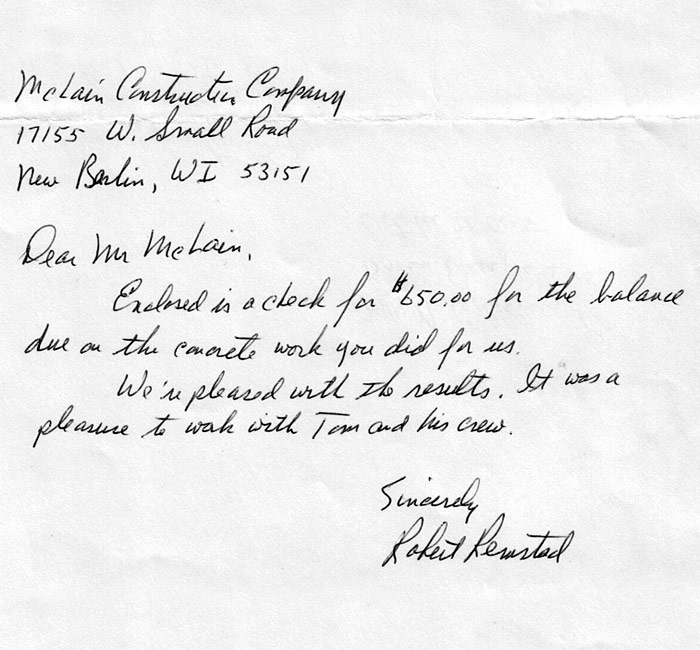 McLain Construction Company
17155 W. Small Road
New Berlin, WI 53151
Dear Mr McLain,
Enclosed is a check for $650.00 for the balance
due on the concrete work you did for us.
We're pleased with the results. It was a
pleasure to work with Tom and his crew.
Sincerely
Robert Remstad